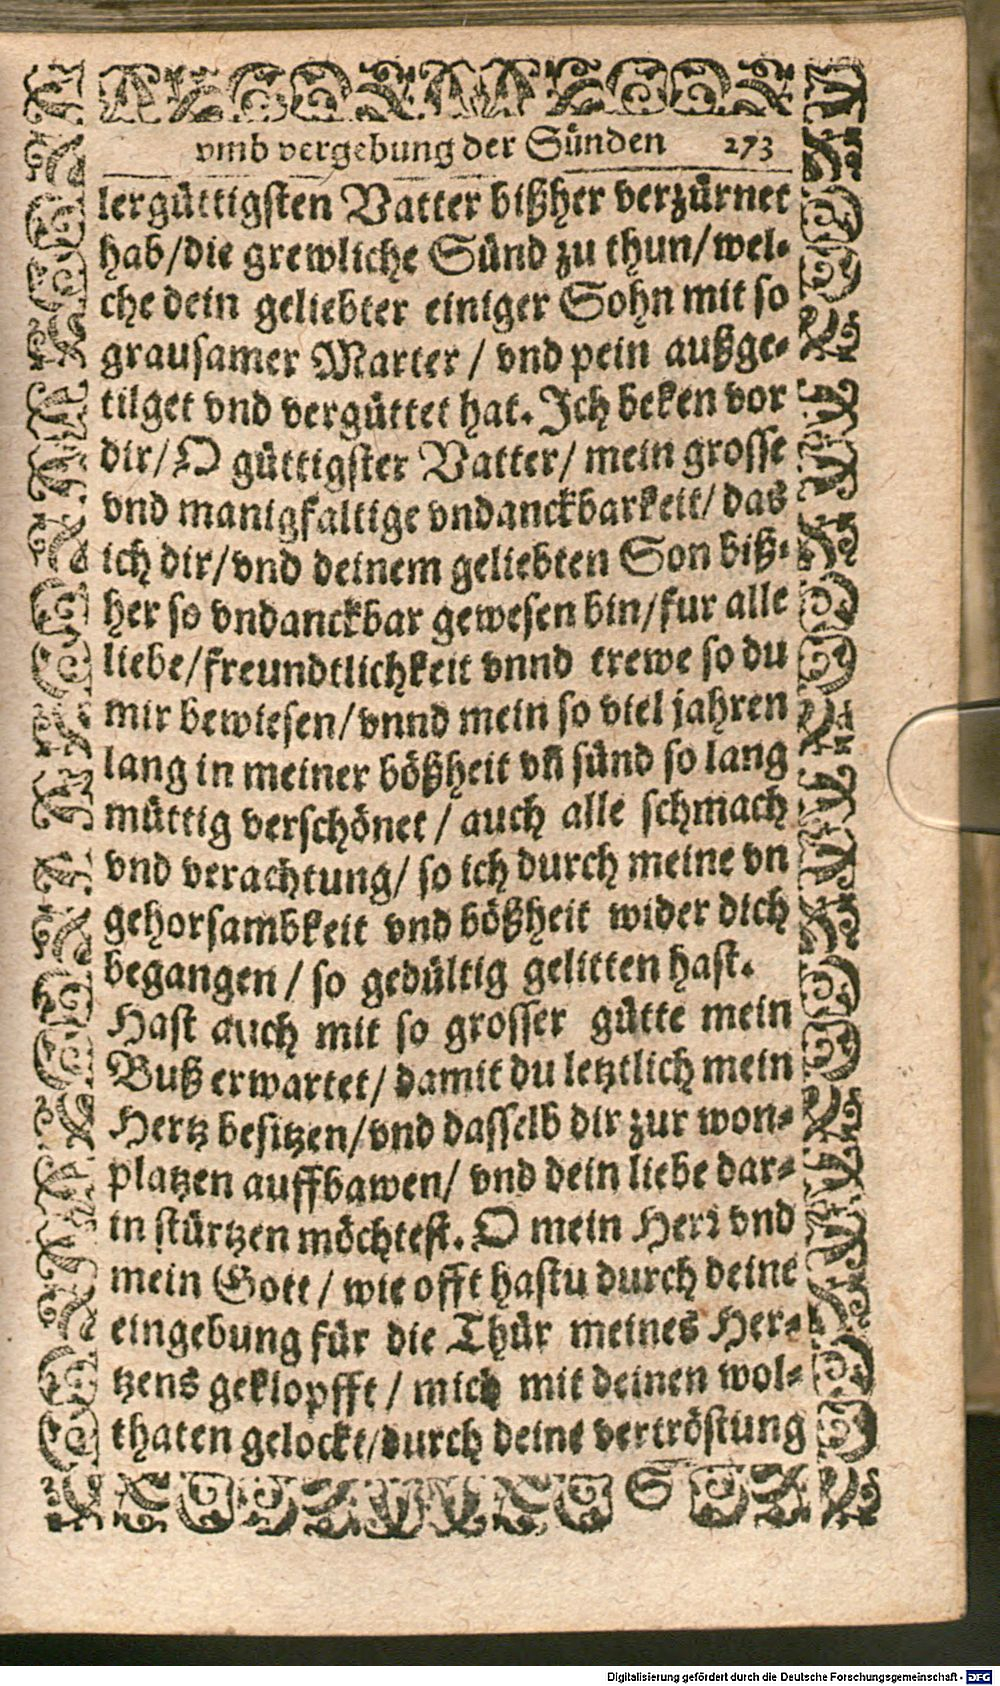 vmb vergebung der Sünden 273
lergüttigsten Vatter bißher verzürnet
hab/die grewliche Sünd zu thun/wel-
che dein geliebter einiger Sohn mit so
grausamer Marter / vnd pein außge-
tilget vnd vergüttet hat. Ich beken vor
dir/O güttigster Vatter/ mein grosse
vnd manigfaltige vndanckbarkeit/ das
ich dir/vnd deinem geliebten Son biß-
her so vndanckbar gewesen bin/fur alle
liebe/freundtlichkeit vnnd trewe so du
mir bewiesen/vnnd mein so viel jahren
lang in meiner bößheit vñ sünd so lang
müttig verschönet / auch alle schmach
vnd verachtung/ so ich durch meine vn
gehorsambkeit vnd bößheit wider dich
begangen / so gedültig gelitten hast.
Hast auch mit so grosser gütte mein
Buß erwartet/ damit du letztlich mein
Hertz besitzen/vnd dasselb dir zur won-
platzen auffbawen/ vnd dein liebe dar-
in stürtzen möchtest. O mein Herr vnd
mein Gott / wie offt hastu durch deine
eingebung für die Thür meines Her-
tzens geklopfft / mich mit deinen wol-
thaten gelockt/durch deine vertröstung
S
Digitalisierung gefördert durch die Deutsche Forschungsgemeinschaft - DFG